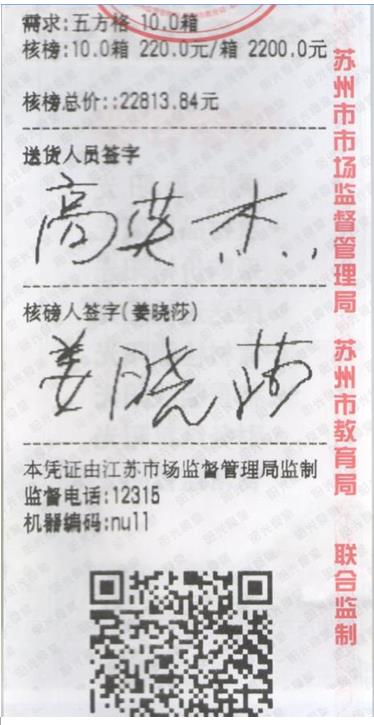 需求:五方格 10.0箱
核榜:10.0箱 220.0元/箱 2200.0元
核榜总价::22813.84元
送货人员签字
高英杰
核磅人签字(姜晓莎)
姜晓莎
本凭证由江苏市场监督管理局监制
监督电话:12315
机器编码:null
苏州市市场监督管理局 苏州市教育局 联合监制